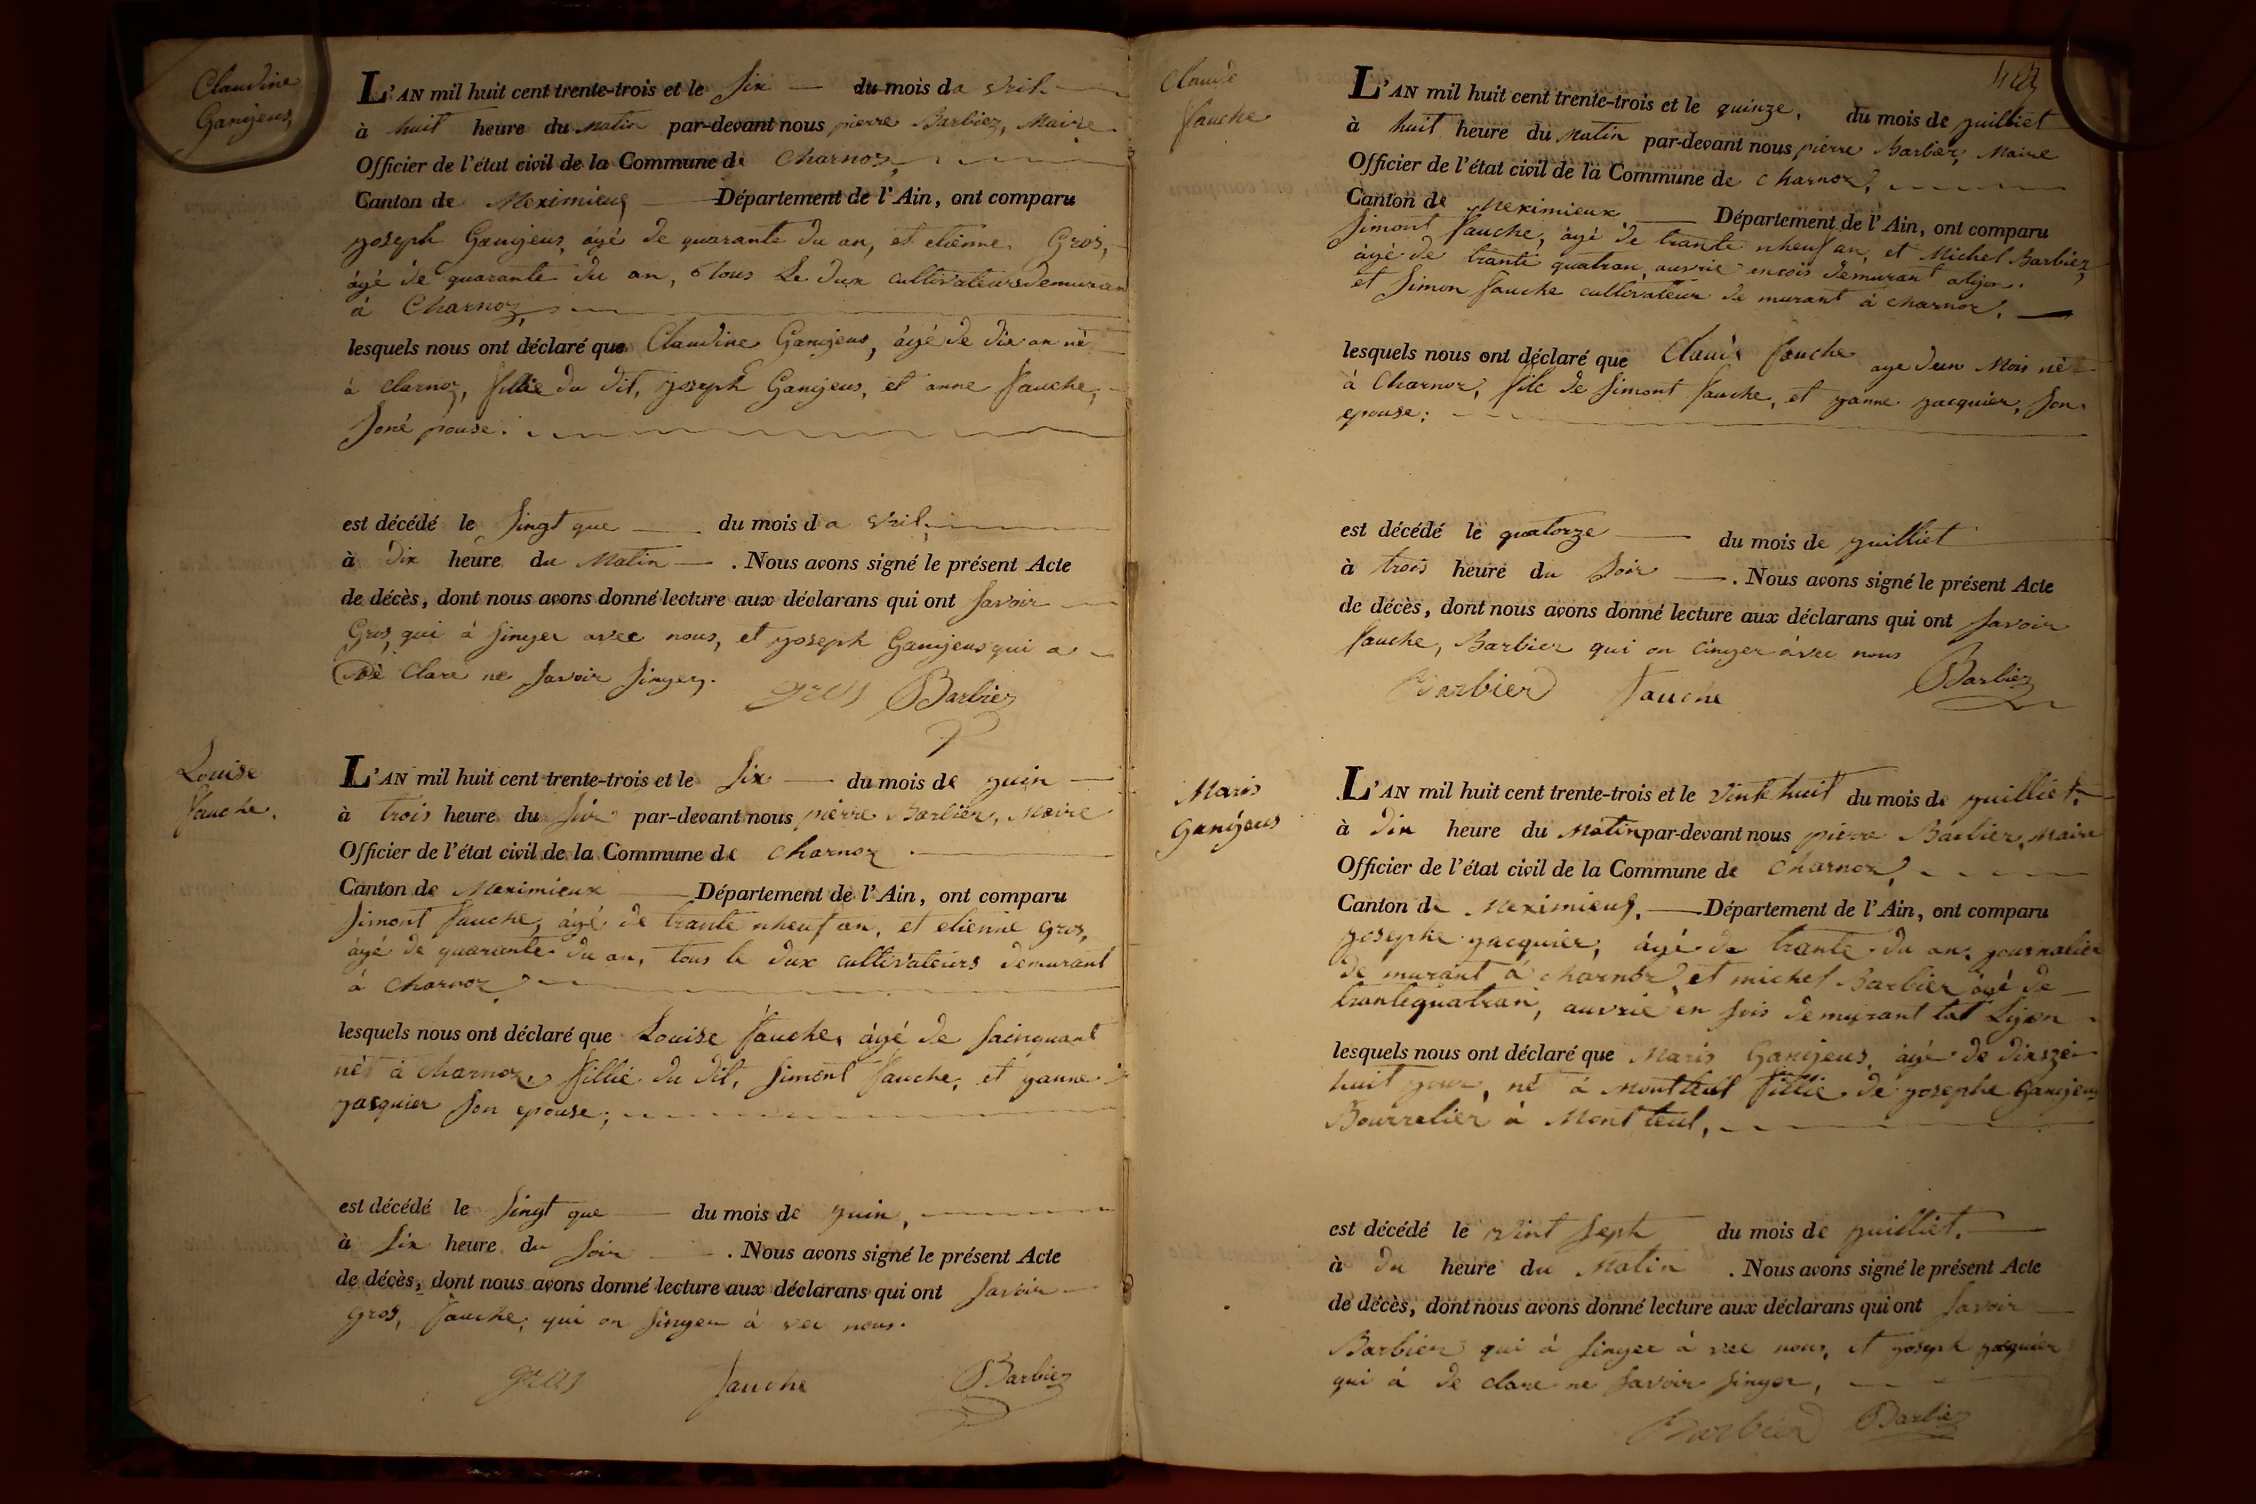 Claudine
Ganijeus
L'AN mil huit cent trente-trois et le six du mois da vril
à huit heure du matin par-devant nous pierre Barbier, Maire
Officier de l'état civil de la Commune de Charnoz,
Canton de Meximieux Département de l'Ain, ont comparu
joseph Ganijeus, âgé de quarante du an, et etienne Gros,
âgé de quarante du an, tous Le dux cultivateurs demuran
à Charnoz,
lesquels nous ont déclaré que Claudine Ganijeus, âgé de dix an né
à Charnoz, fillie du dit, joseph Ganijeus, et anne fauche,
soné pouse.
est décédé le singt que du mois da vril,
à dix heure du Matin . Nous avons signé le présent Acte
de décès, dont nous avons donné lecture aux déclarans qui ont savoir
Gros, qui à singer avec nous, et joseph Ganijeus qui a
dé clare ne savoir singer.
gros Barbier
Louise
fauche.
L'AN mil huit cent trente-trois et le six du mois de juin
à trois heure du soir par-devant nous pierre Barbier, Maire
Officier de l'état civil de la Commune de Charnoz
Canton de Meximieux Département de l'Ain, ont comparu
simont fauche, âgé de trante nheuf an, et etienne gros,
âgé de quarante du an, tous le dux cultivateurs demurant
à Charnoz
lesquels nous ont déclaré que Louise fauche, âgé de sainquant
né à Charnoz, fillie du dit, simont fauche, et janne
jacquier son epouse;
est décédé le singt que du mois de juin,
à six heure du soir . Nous avons signé le présent Acte
de décès, dont nous avons donné lecture aux déclarans qui ont savoir
gros, fauche, qui on singer à vec nous.
gros fauche Barbier
Claude
fauche
L'AN mil huit cent trente-trois et le quinze, du mois de juilliet
à huit heure du matin par-devant nous pierre Barbier, Maire
Officier de l'état civil de la Commune de Charnoz,
Canton de Meximieux, Département de l'Ain, ont comparu
simont fauche, âgé de trante nheuf an, et Michel Barbier,
âgé de trante quatran, auvrie ensois demurant alijon.
et simon fauche cultivateur de murant à charnoz.
lesquels nous ont déclaré que Claude fauche age deun Mois né
à Charnoz, fils de simont fauche, et janne jacquier, son
epouse;
est décédé le quatorze du mois de juilliet
à trois heure du soir . Nous avons signé le présent Acte
de décès, dont nous avons donné lecture aux déclarans qui ont savoir
fauche, Barbier qui on cinger avec nous
Barbier fauche Barbier
Maris
Ganijeus
L'AN mil huit cent trente-trois et le vinte huit du mois de juilliet,
à dix heure du Matin par-devant nous pierre Barbier, Maire
Officier de l'état civil de la Commune de Charnoz,
Canton de Meximieux, Département de l'Ain, ont comparu
josephe jacquier, âgé de trante du an, journalier
de murant à charnoz, et michel Barbier âgé de
trantequatran, auvrie en sois demurant tat Lijon
lesquels nous ont déclaré que Maris Ganijeus, âgé de
huit jour, né à Montluil fillie de josephe Ganijeus
Bourrelier à Mont luil,
est décédé le vint seph du mois de juilliet.
à du heure du Matin . Nous avons signé le présent Acte
de décès, dont nous avons donné lecture aux déclarans qui ont savoir
Barbier qui à singer à vec nous, et joseph jacquier
qui à de clare ne savoir singer,
Barbier Barbier